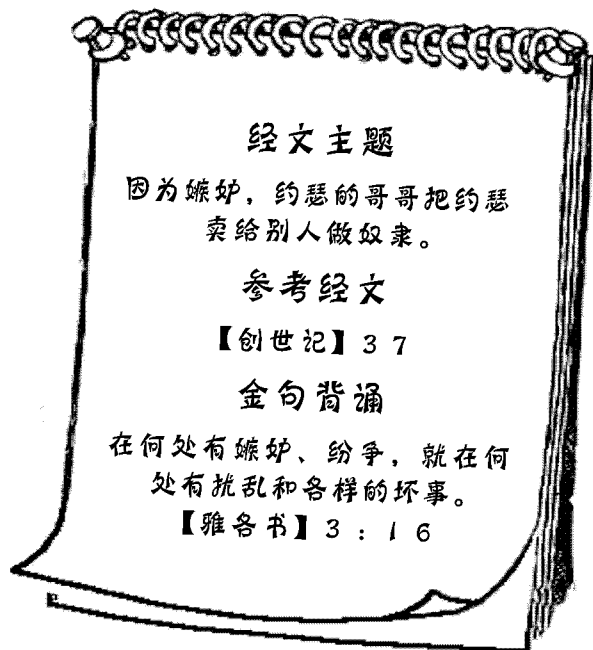 经文主题
因为嫉妒，约瑟的哥哥把约瑟
卖给别人做奴隶。
参考经文
【创世记】37
金句背诵
在何处有嫉妒、纷争，就在何
处有扰乱和各样的坏事。
【雅各书】3：16